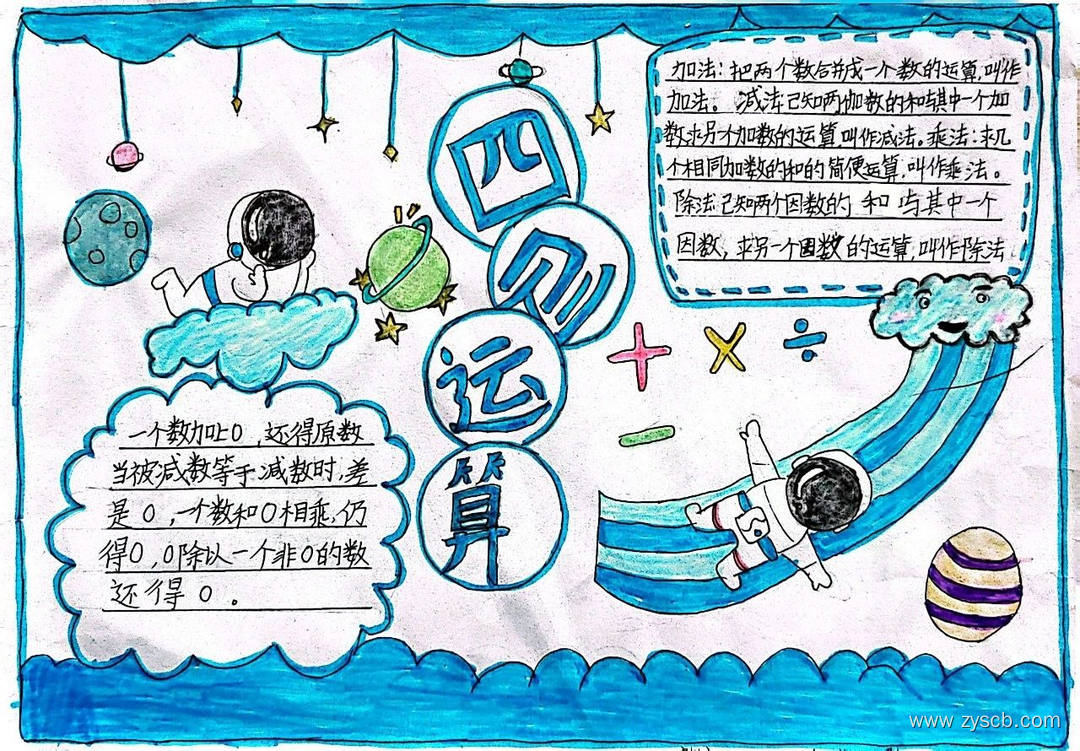 四
则
运
算
加法:把两个数合并成一个数的运算,叫作
加法。减法已知两个加数的和与其中一个加
数求另个加数的运算,叫作减法。乘法:求几
个相同加数的和的简便运算,叫作乘法。
除法已知两个因数的和与其中一个
因数,求另一个因数的运算,叫作除法
+ × ÷
−
一个数加上0,还得原数
当被减数等于减数时,差
是0,一个数和0相乘,仍
得0,0除以一个非0的数
还得0。
www.zyscb.com